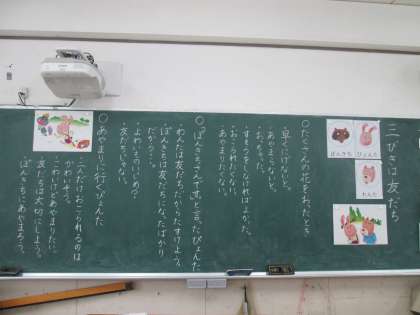 二ひきは友だち
ぽんきち
ぴょんた
わんた
○たくさんの花をおったとき
・早くにげないと。
・あやまらないと。
・おっちゃった。
・すもうをしなければよかった。
・おこられたくない。
・あやまりたくない。
○「ぽんきちさんです。」と言ったぴょんた
・わんたは友だちだからたすけよう。
・ぽんきちは友だちになったばかりだから…。
・よわいものいじめ?
・友だちじゃない。
○あやまりに行くぴょんた
・二人だけおこられるのはかわいそう。
・こわいけどあやまりたい。
・友だちは大切にしよう。
・ぽんきちにあやまろう。